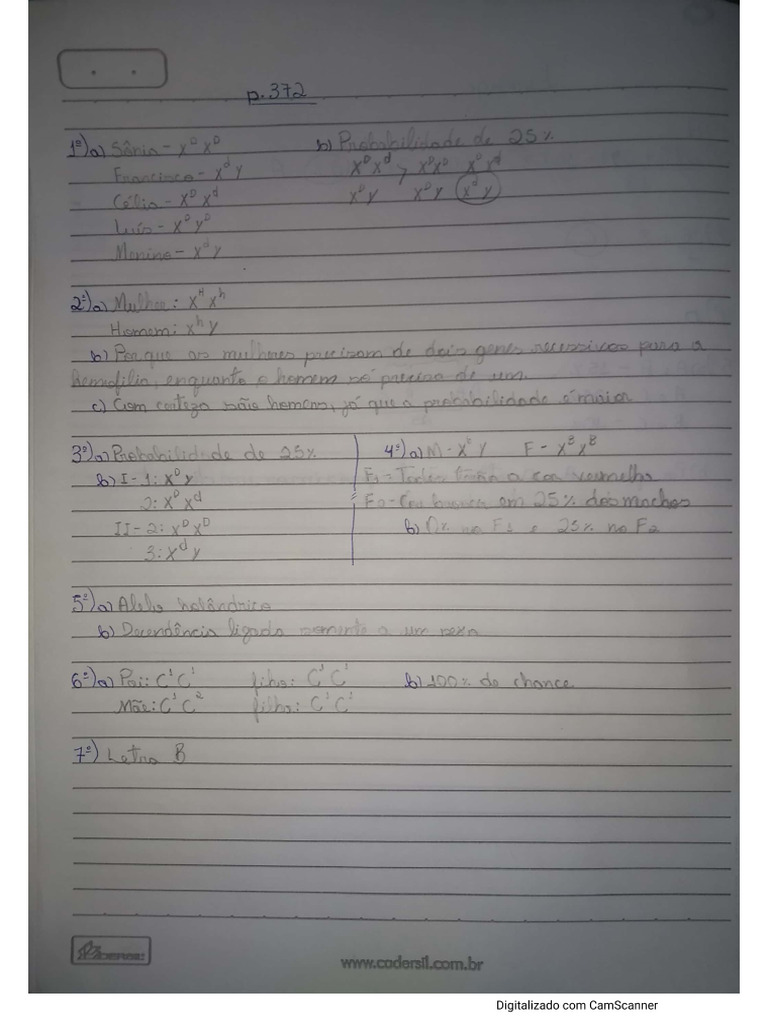 p.372
1º) a) Sônia - X^D X^D
b) Probabilidade de 25%
Francisco - X^d Y
X^D X^d , X^D X^D X^D X^d
Célia - X^D X^d
X^D Y X^D Y X^d Y
Luís - X^D Y^D
Menino - X^d Y
2º) a) Mulher: X^H X^h
Homem: X^h Y
b) Por que as mulheres precisam de dois genes recessivos para a
hemofilia, enquanto o homem só precisa de um.
c) Com certeza são homens, já que a probabilidade é maior
3º) a) Probabilidade de 25%
b) I - 1: X^D Y
2: X^D X^d
II - 2: X^D X^D
3: X^d Y
4º) a) M - X Y F - X^B X^B
F1 - Todos terão a cor vermelha
F2 - Cor branca em 25% dos machos
b) 0% na F1 e 25% na F2
5º) a) Alelo holândrico
b) Decendência ligada somente a um sexo
6º) a) Pai: C¹ C¹ filho: C¹ C¹ b) 100% de chance
Mãe: C¹ C² filha: C¹ C¹
7º) Letra B
CADERSIL
www.cadersil.com.br
Digitalizado com CamScanner